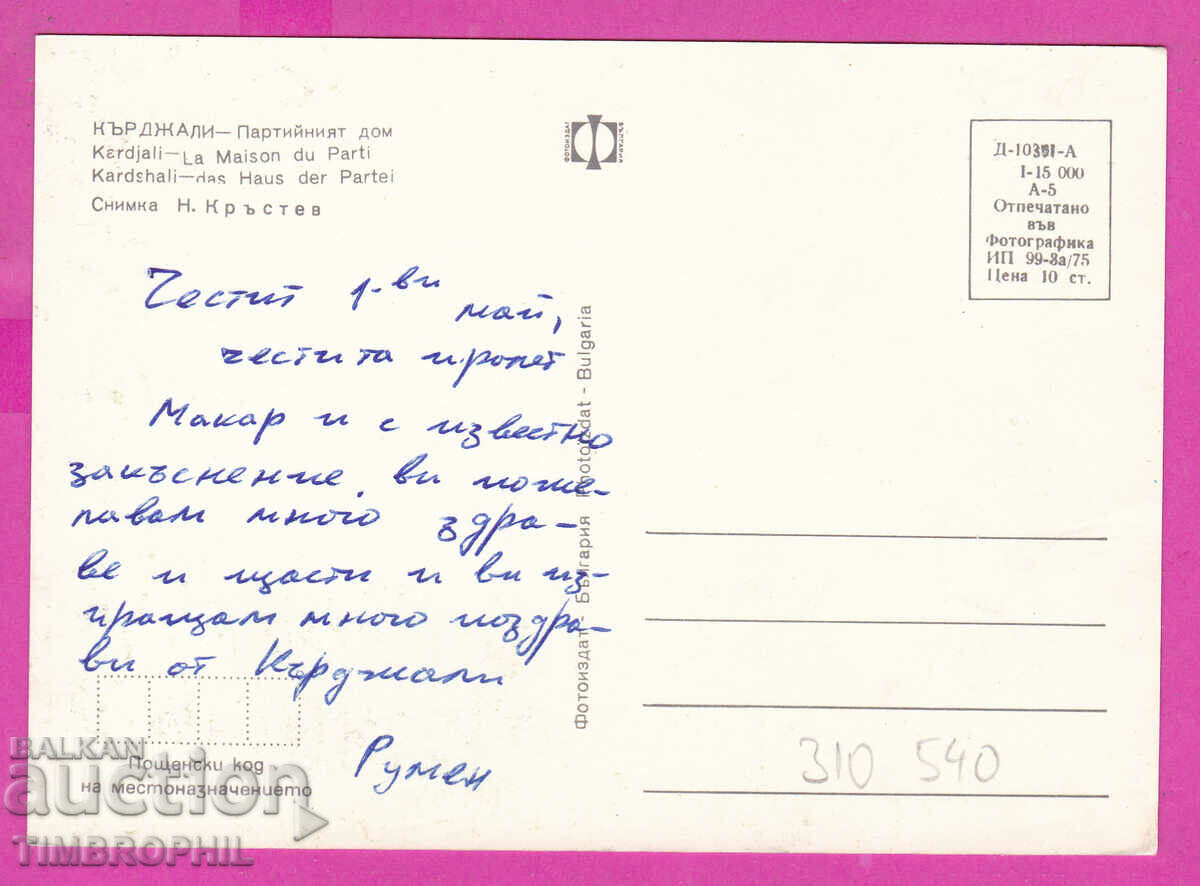 КЪРДЖАЛИ — Партийният дом
Kardjali — La Maison du Parti
Kardshali — das Haus der Partei
Снимка Н. Кръстев
ФОТОИЗДАТ
БЪЛГАРИЯ
I-15 000
А-5
Отпечатано
във
Фотографика
ИП 99-3а/75
Цена 10 ст.
Честит 1-ви
май,
честита пролет
Макар и с известно
закъснение ви поже-
лавам много здра-
ве и щасти и ви из-
пращам много поздра-
ви от Кърджали
Румен
Фотоиздат - България Photoizdat - Bulgaria
Пощенски код
на местоназначението
310 540
BALKAN
auction
TIMBROPHIL